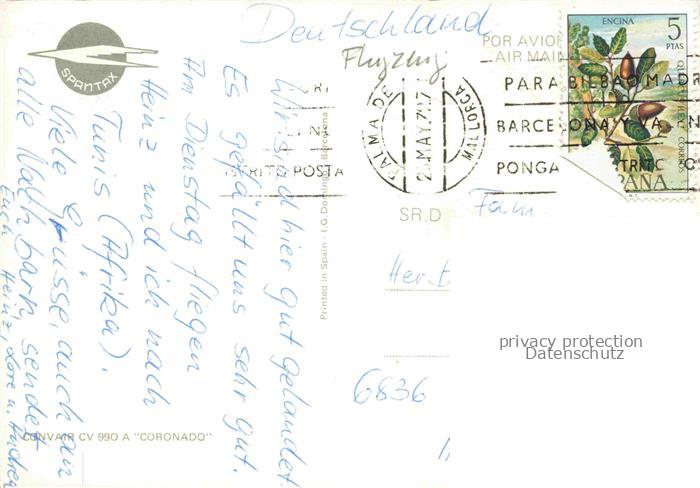 Deutschland
Flugzeug
POR AVION
AIR MAIL
ENCINA
5
PTAS
CORREOS
PARA BILBAO MADR
BARCELONA Y VA
PONGA
DISTRITO POSTA
PALMA DE MALLORCA
MAY.
SPANTAX
Wir sind hier gut gelandet.
Es gefällt uns sehr gut.
Am Dienstag fliegen
Heinz und ich nach
Tunis (Afrika).
Viele Grüsse, auch an
alle Nachbarn sendet
Euch Heinz, Lore u. Andrea
Printed in Spain - I.G. Domingo - Barcelona
SR.D
Fam.
Her
6836
privacy protection
Datenschutz
CONVAIR CV 990 A "CORONADO"